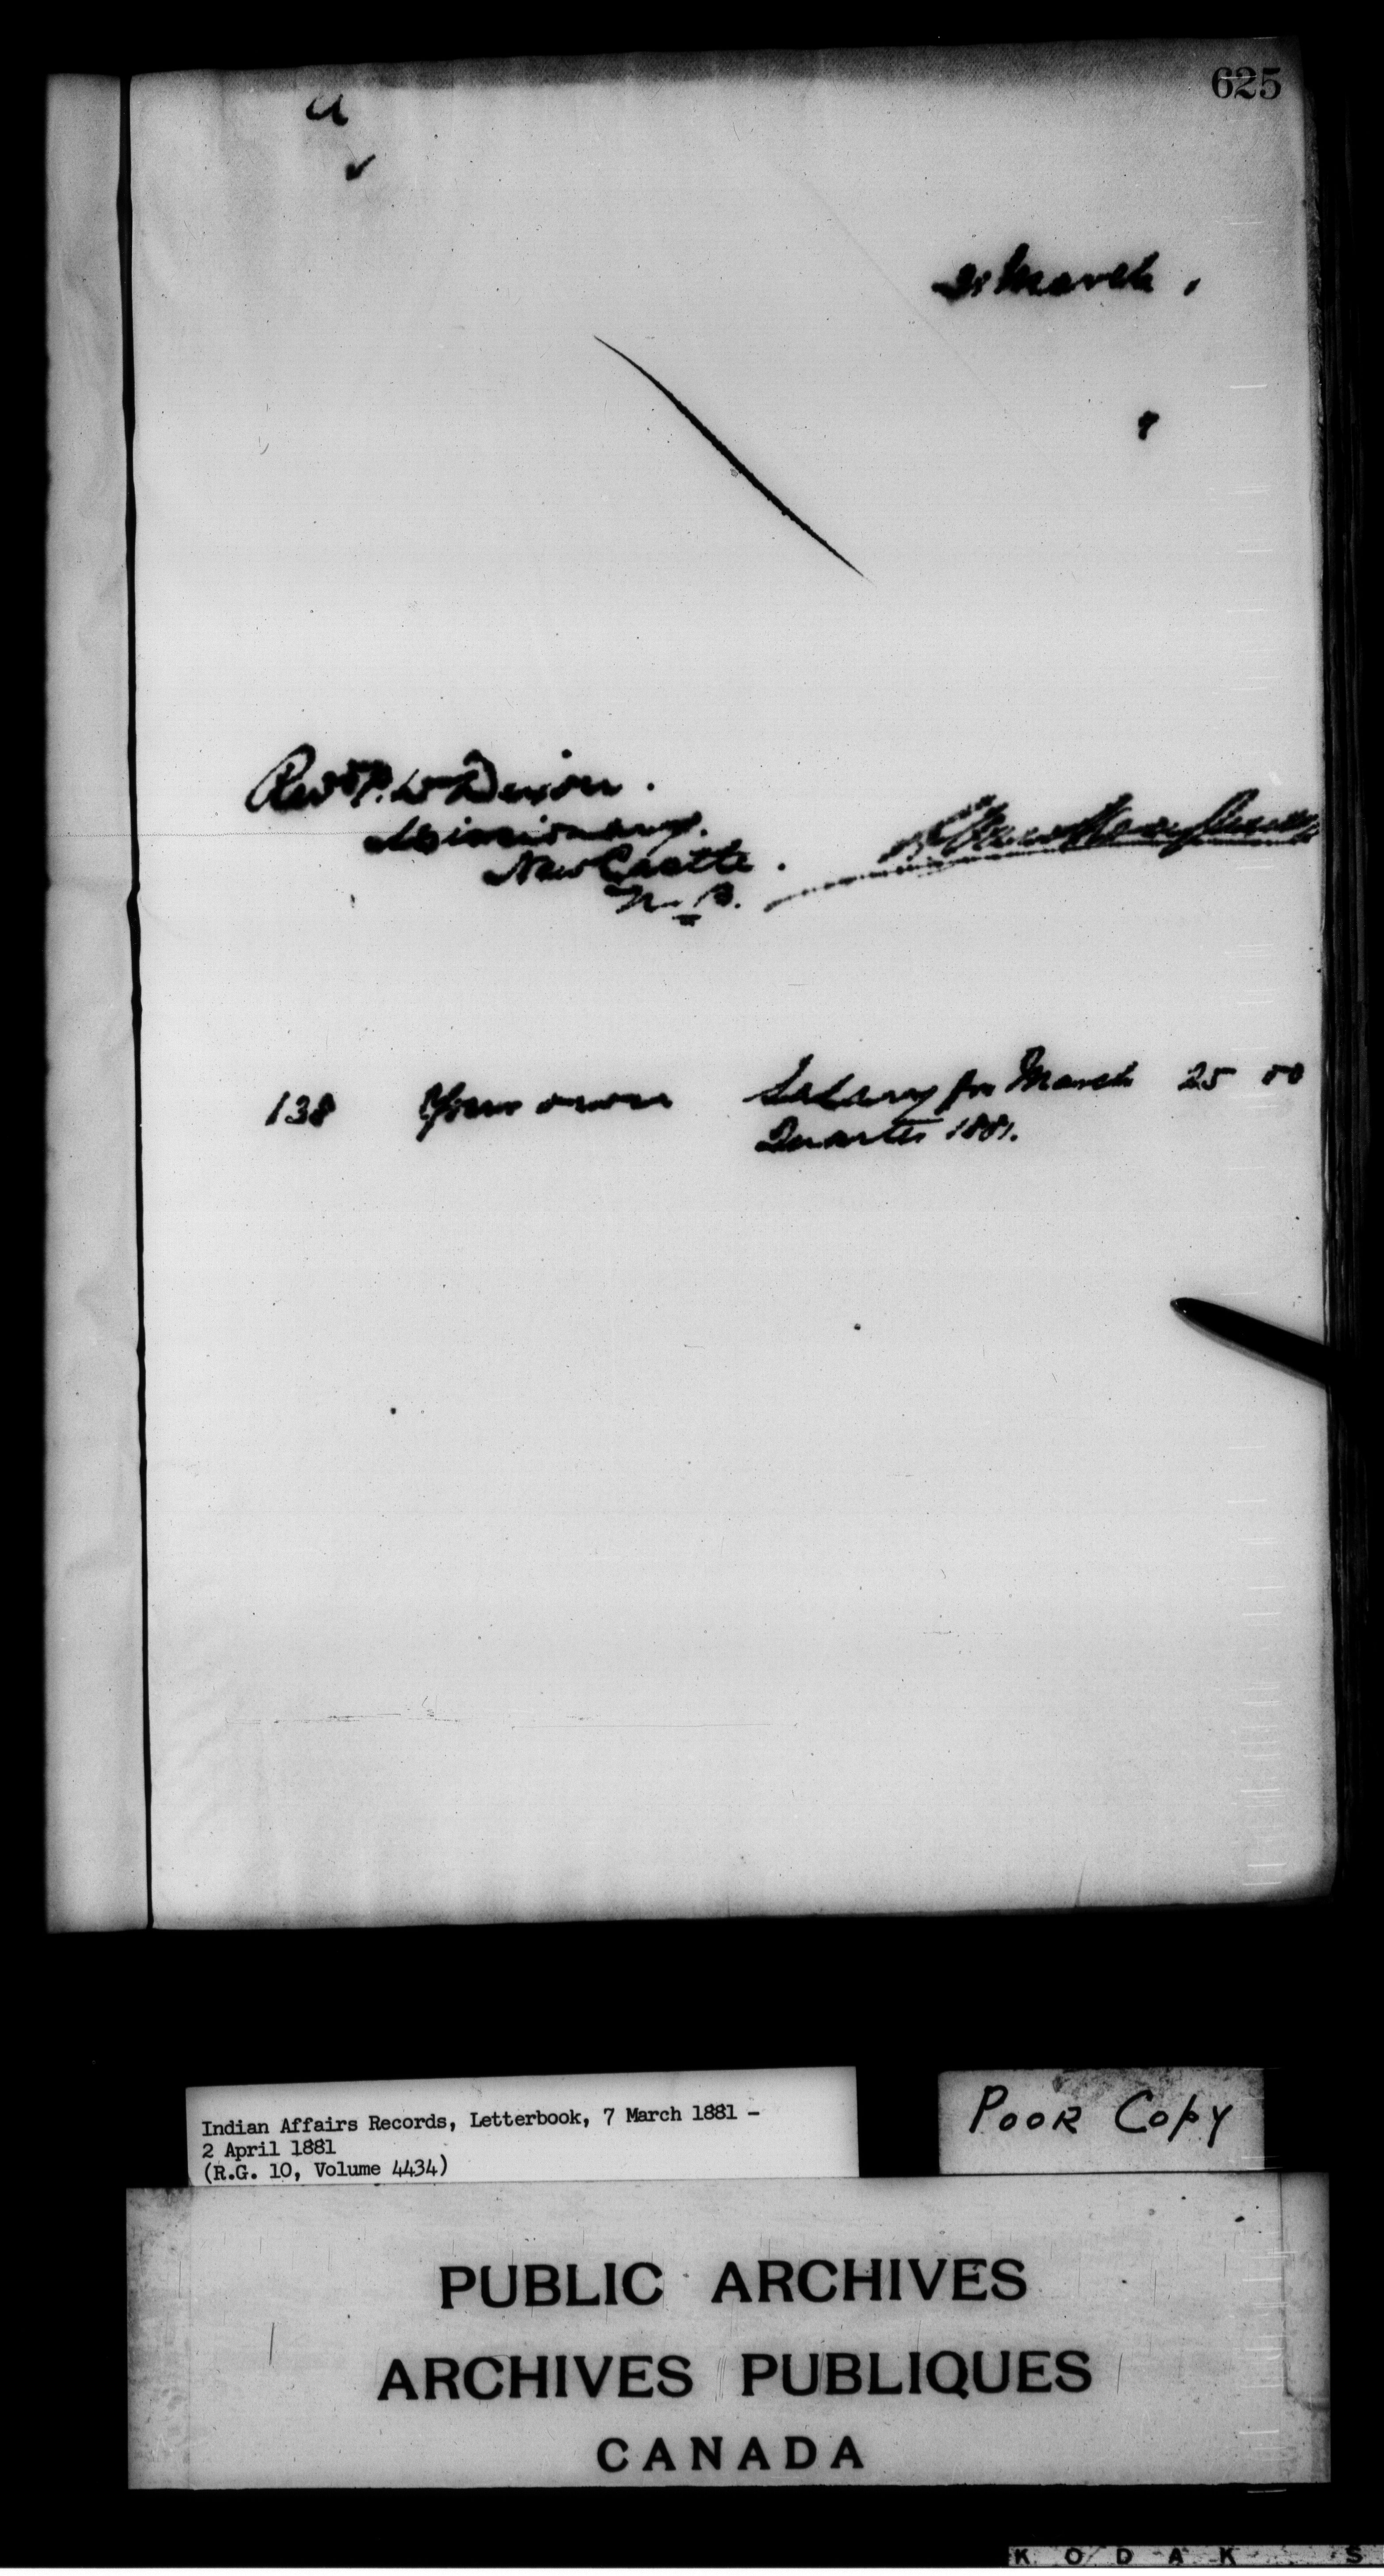 625
a
31 March,
Revd P. W Dixon.
Missionary.
New Castle.
N. B.
138 Your own Salary for March 25 00
Quarter 1881.
Indian Affairs Records, Letterbook, 7 March 1881 -
2 April 1881
(R.G. 10, Volume 4434)
POOR COPY
PUBLIC ARCHIVES
ARCHIVES PUBLIQUES
CANADA
KODAK S